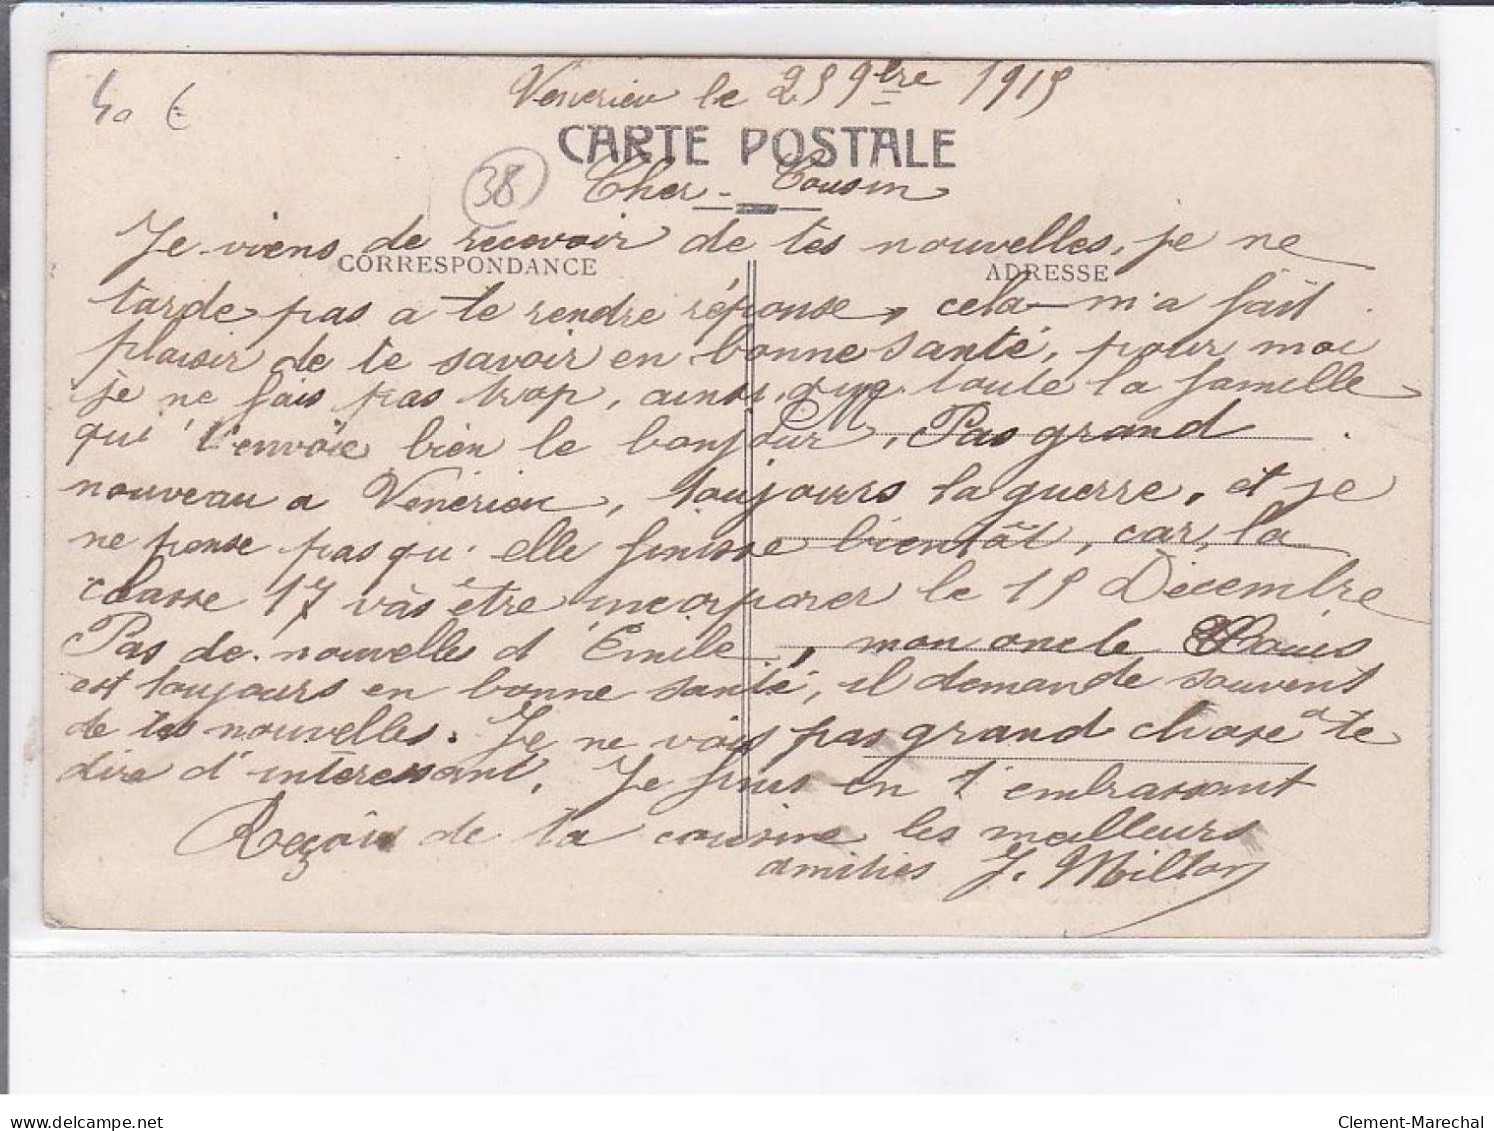 40 €
Vénérieu le 25 9bre 1915
CARTE POSTALE
38
Cher Cousin
Je viens de recevoir de tes nouvelles, je ne
CORRESPONDANCE
ADRESSE
tarde pas a te rendre réponse, cela m'a fait
plaisir de te savoir en bonne santé, pour moi
je ne fais pas trop, ainsi que toute la famille
qui t'envoie bien le bonjour, Pas grand
nouveau a Vénérieu, toujours la guerre, et je
ne pense pas qu'elle finisse bientôt, car, la
classe 17 vàs être incorporer le 15 Décembre
Pas de nouvelles d'Emile, mon oncle Louis
est toujours en bonne santé, il demande souvent
de tes nouvelles. Je ne vois pas grand chose a te
dire d'intéressant. Je finis en t'embrassant
Reçois de ta cousine les meilleurs
amitiés J. Milton
delcampe.net
Clement-Marechal